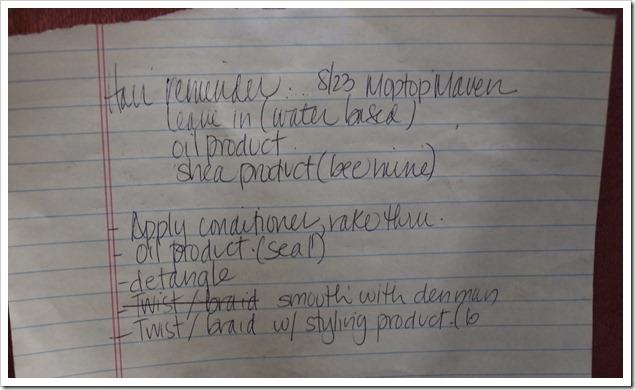 Hair reminder... 8/23 MoptopMaven
leave in (water based)
oil product.
shea product (bee mine)
- Apply conditioner, rake thru.
- oil product. (seal)
- detangle
- Twist / braid smooth with denman
- Twist / braid w/ styling product. (b